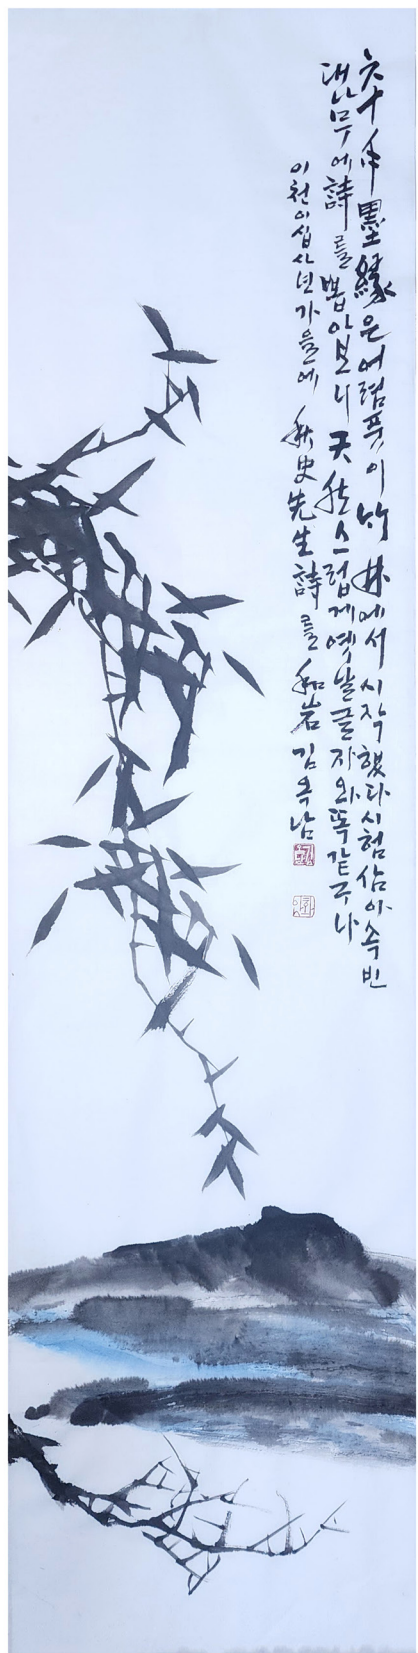 六十年墨緣은어렴풋이竹林에서시작했다시험삼아속빈
대나무에詩를뽑아보니天然스럽게옛날글자와똑같구나
이천이십사년가을에 秋史先生詩를 和岩 김옥남